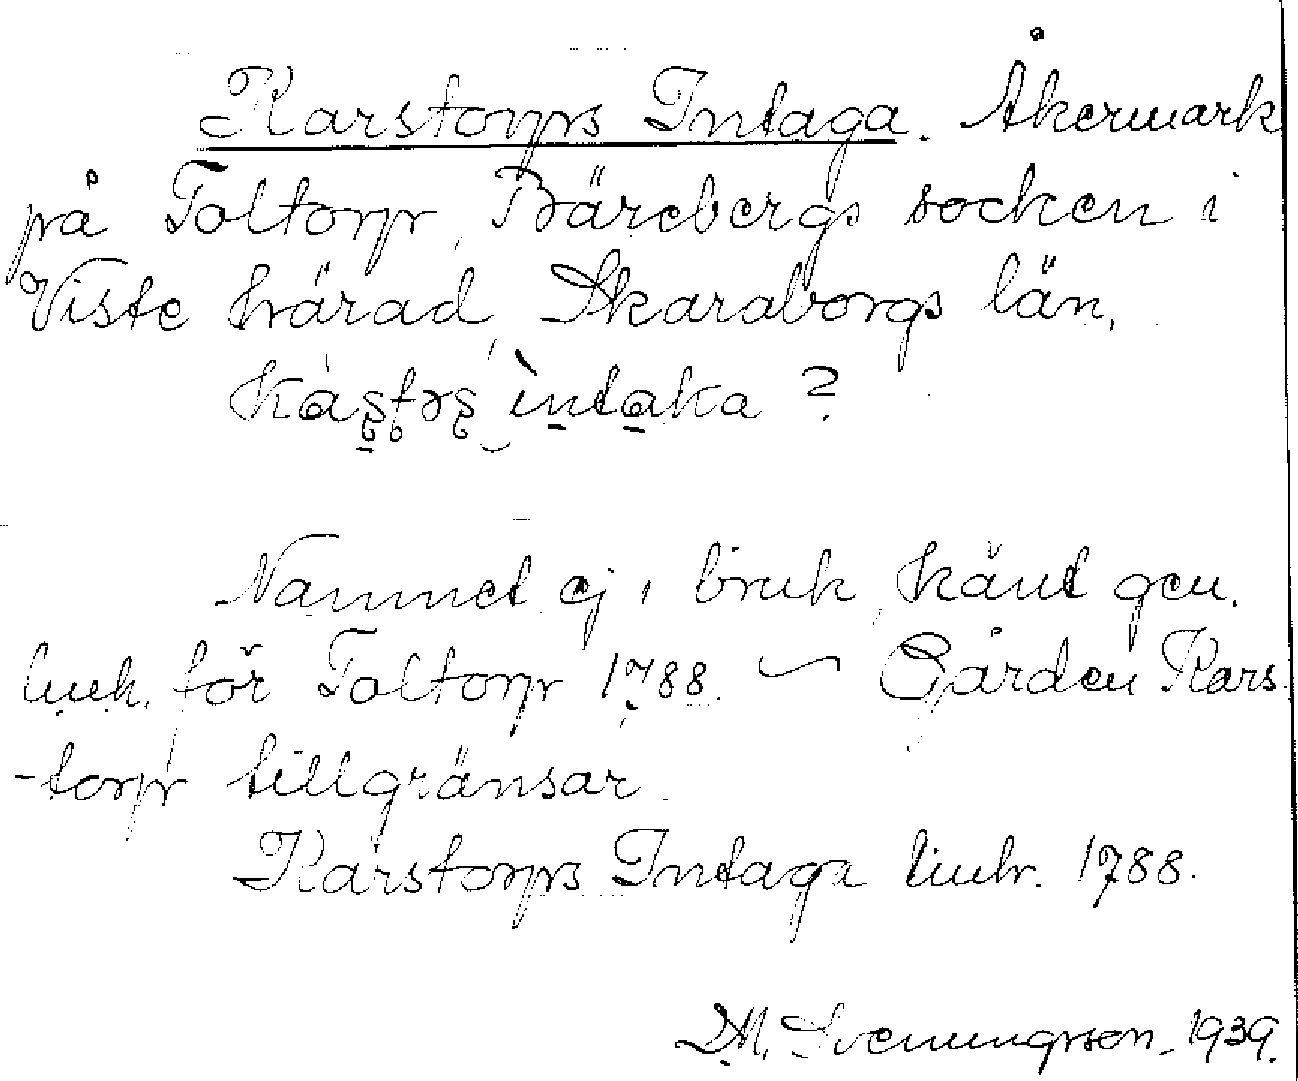 Karstorps Intaga. Åkermark
på Toltorp, Bärebergs socken i
Viste härad, Skaraborgs län.
intaka ?
Namnet ej i bruk, känt gen.
lmh. för Toltorp 1788. ~ Gården Kars
-torp tillgränsar.
Karstorps Intaga lmh. 1788.
D.M. Svenungsson. 1939.